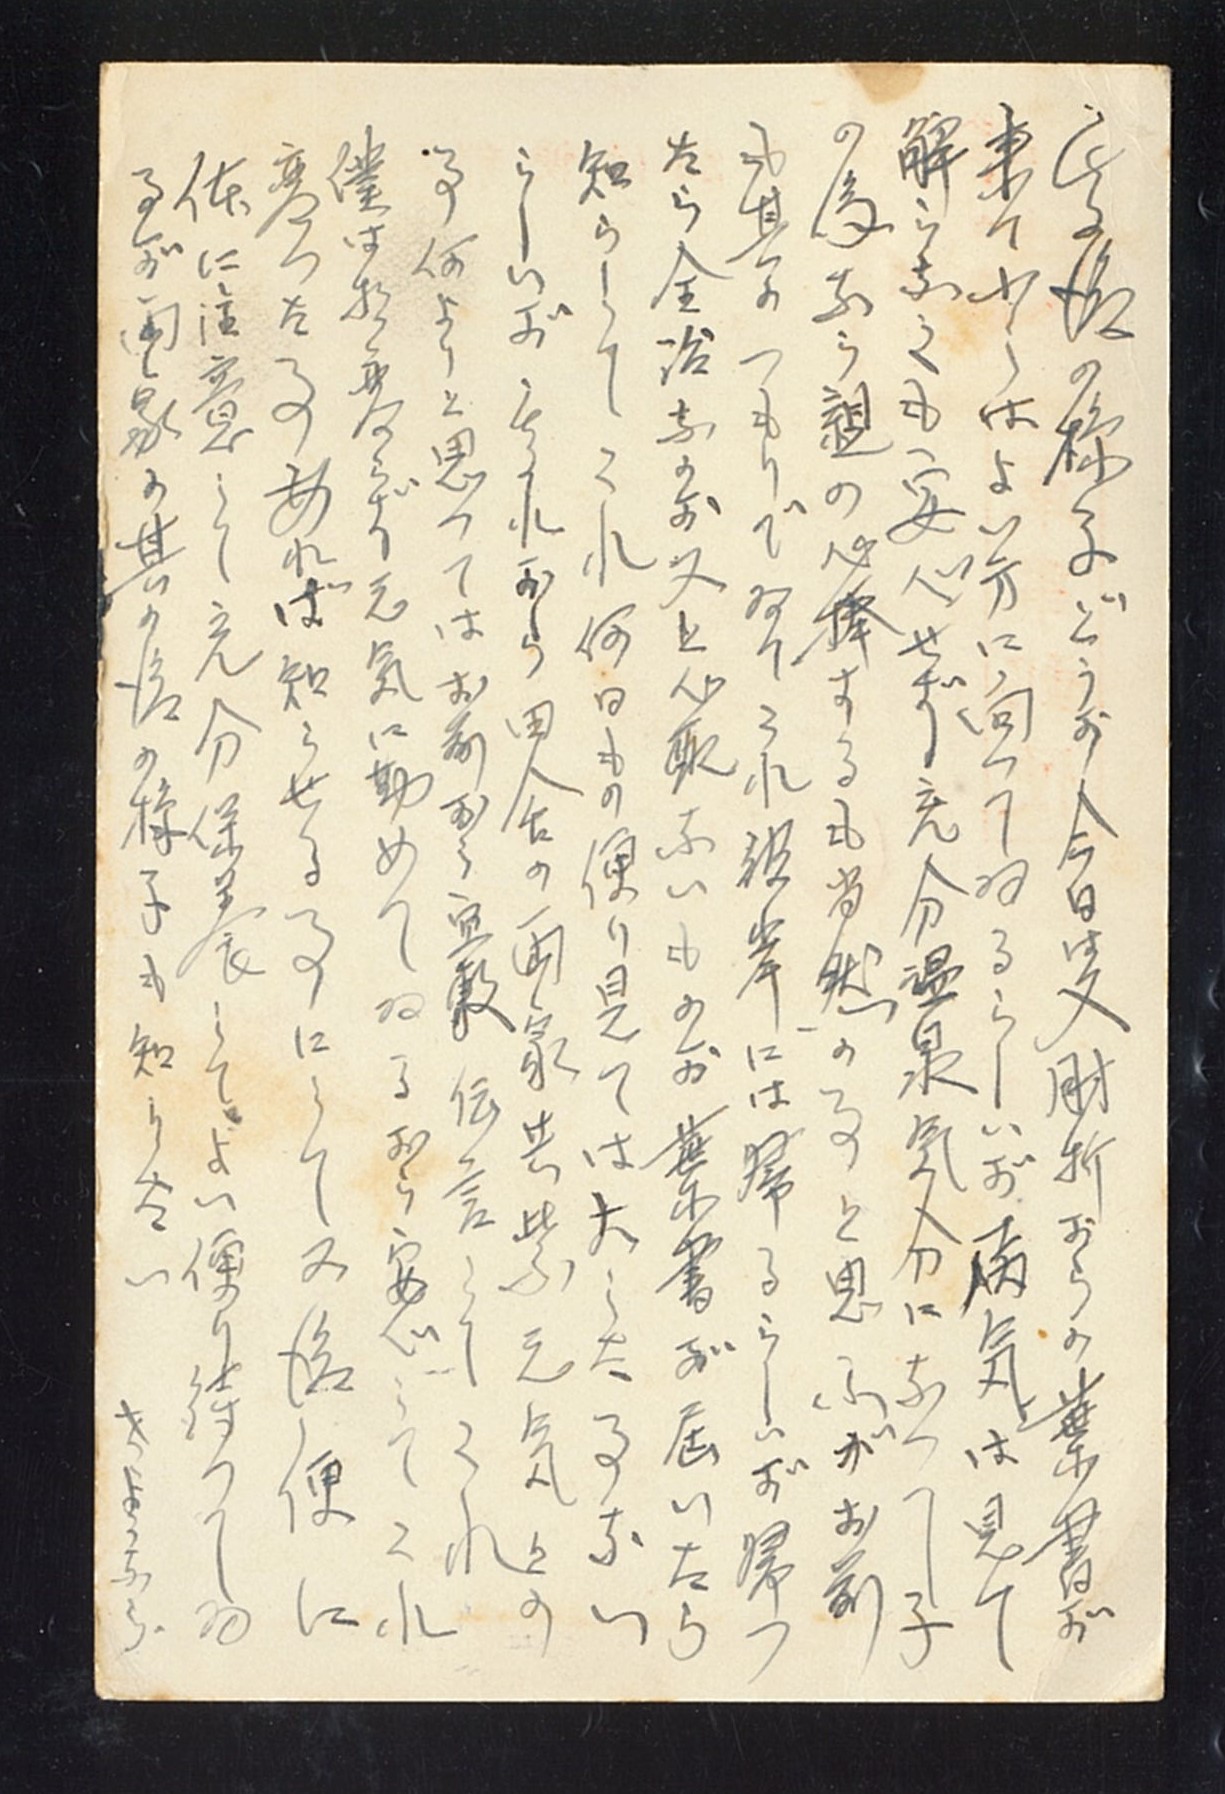 其の後の様子どうか今日は又 からの葉書が
来て少しはよい方に向つてゐるらしいが病気は見て
解らなくも安心せず充分温泉気分になつて子
の為なら親の心 するも当然の事と思ふがお前
も其のつもりで ゐてくれ彼岸には帰るらしいが帰つ
たら全治なのか又と心配ないものか葉書が届いたら
知らしてくれ何日もの便り見ては大した事ない
らしいが それから田舎の両家共皆元気との
事何よりと思つてはお前から宜敷伝言してくれ
僕は相変らず元気に勤めてゐるから安心してくれ
変つた事あれば知らせる事にして又後便に
体に注意して充分保養してよい便り待つてゐ
るが両家の其の後の様子も知りたい さようなら